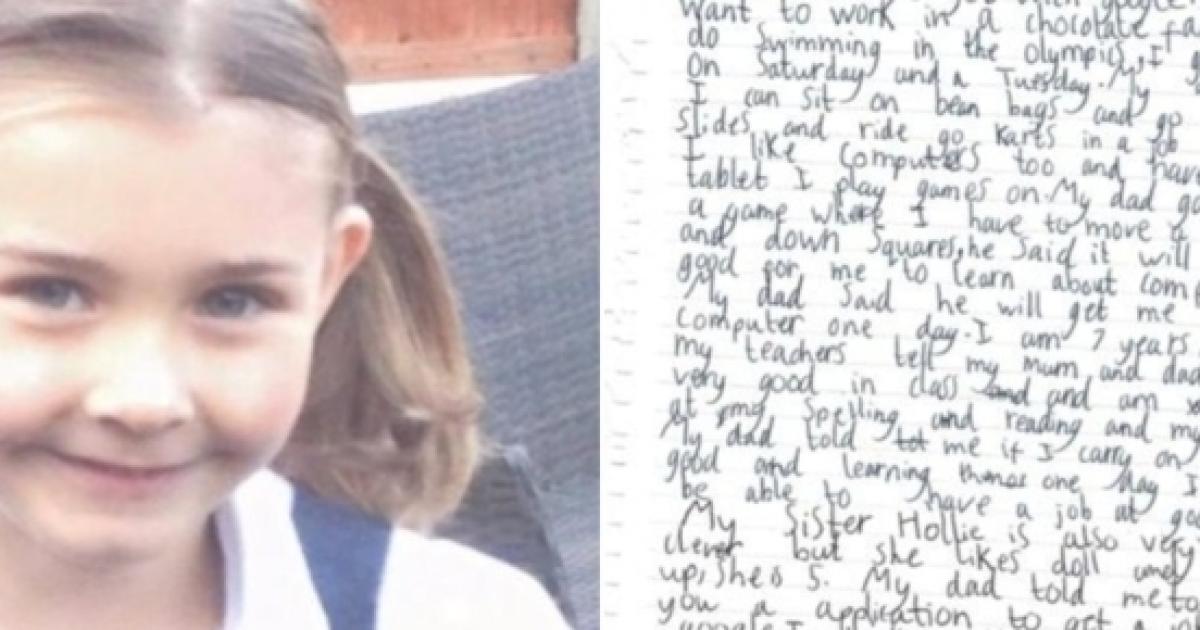 want to work in a chocolate fa
do swimming in the olympics, I g
On Saturday and a Tuesday. My
I can sit on bean bags and go
slides and ride go karts in a job
I like computers too and have
tablet I play games on. My dad ga
a game where I have to move a
and down squares, he said it will
good for me to learn about com
My dad said he will get me
computer one day. I am 7 years
my teachers tell my mum and dad
very good in class and and am
at my spelling and reading and my
My dad told tot me if I carry on
good and learning things one day I
be able to have a job at go
My sister Hollie is also very
clever but she likes doll
up, she is 5. My dad told me to
you a application to get a
google I